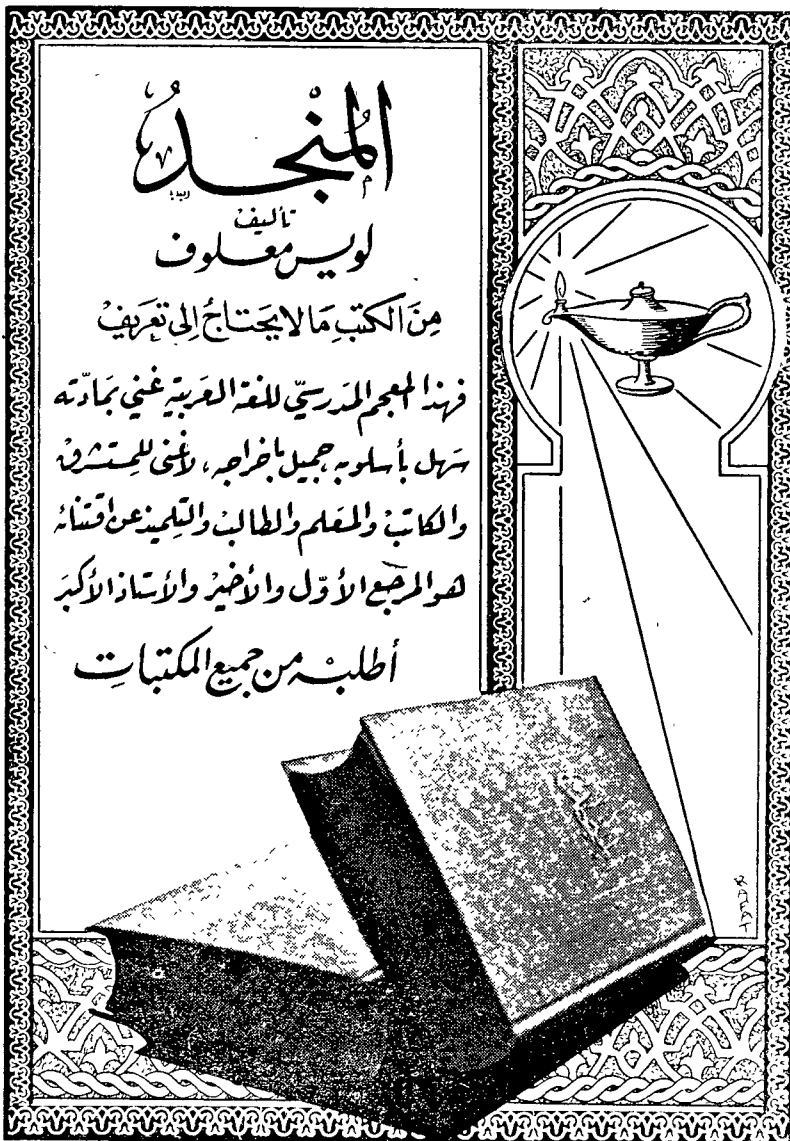 المُنْجدُ
تأليف
لويس معلوف
مِنَ الكتبِ مَا لا يَحتَاجُ إلى تعَريفٍ
فهذا المعجم المدَرسيّ للغة العَربية غني بمَادّته
سَهل بأسلوبه جميل باخراجه، لاغنى للمستشرق
والكاتب والمعَلم والطالب والتلميذ عن اقتنائه
هو المرجع الأوّل والأخير والأستاذ الأكبرَ
أطلبه من جميع المكتبات